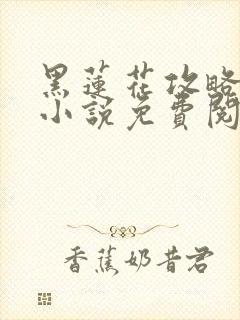 黑蓮花攻略
小說免費閱
香蕉奶昔君